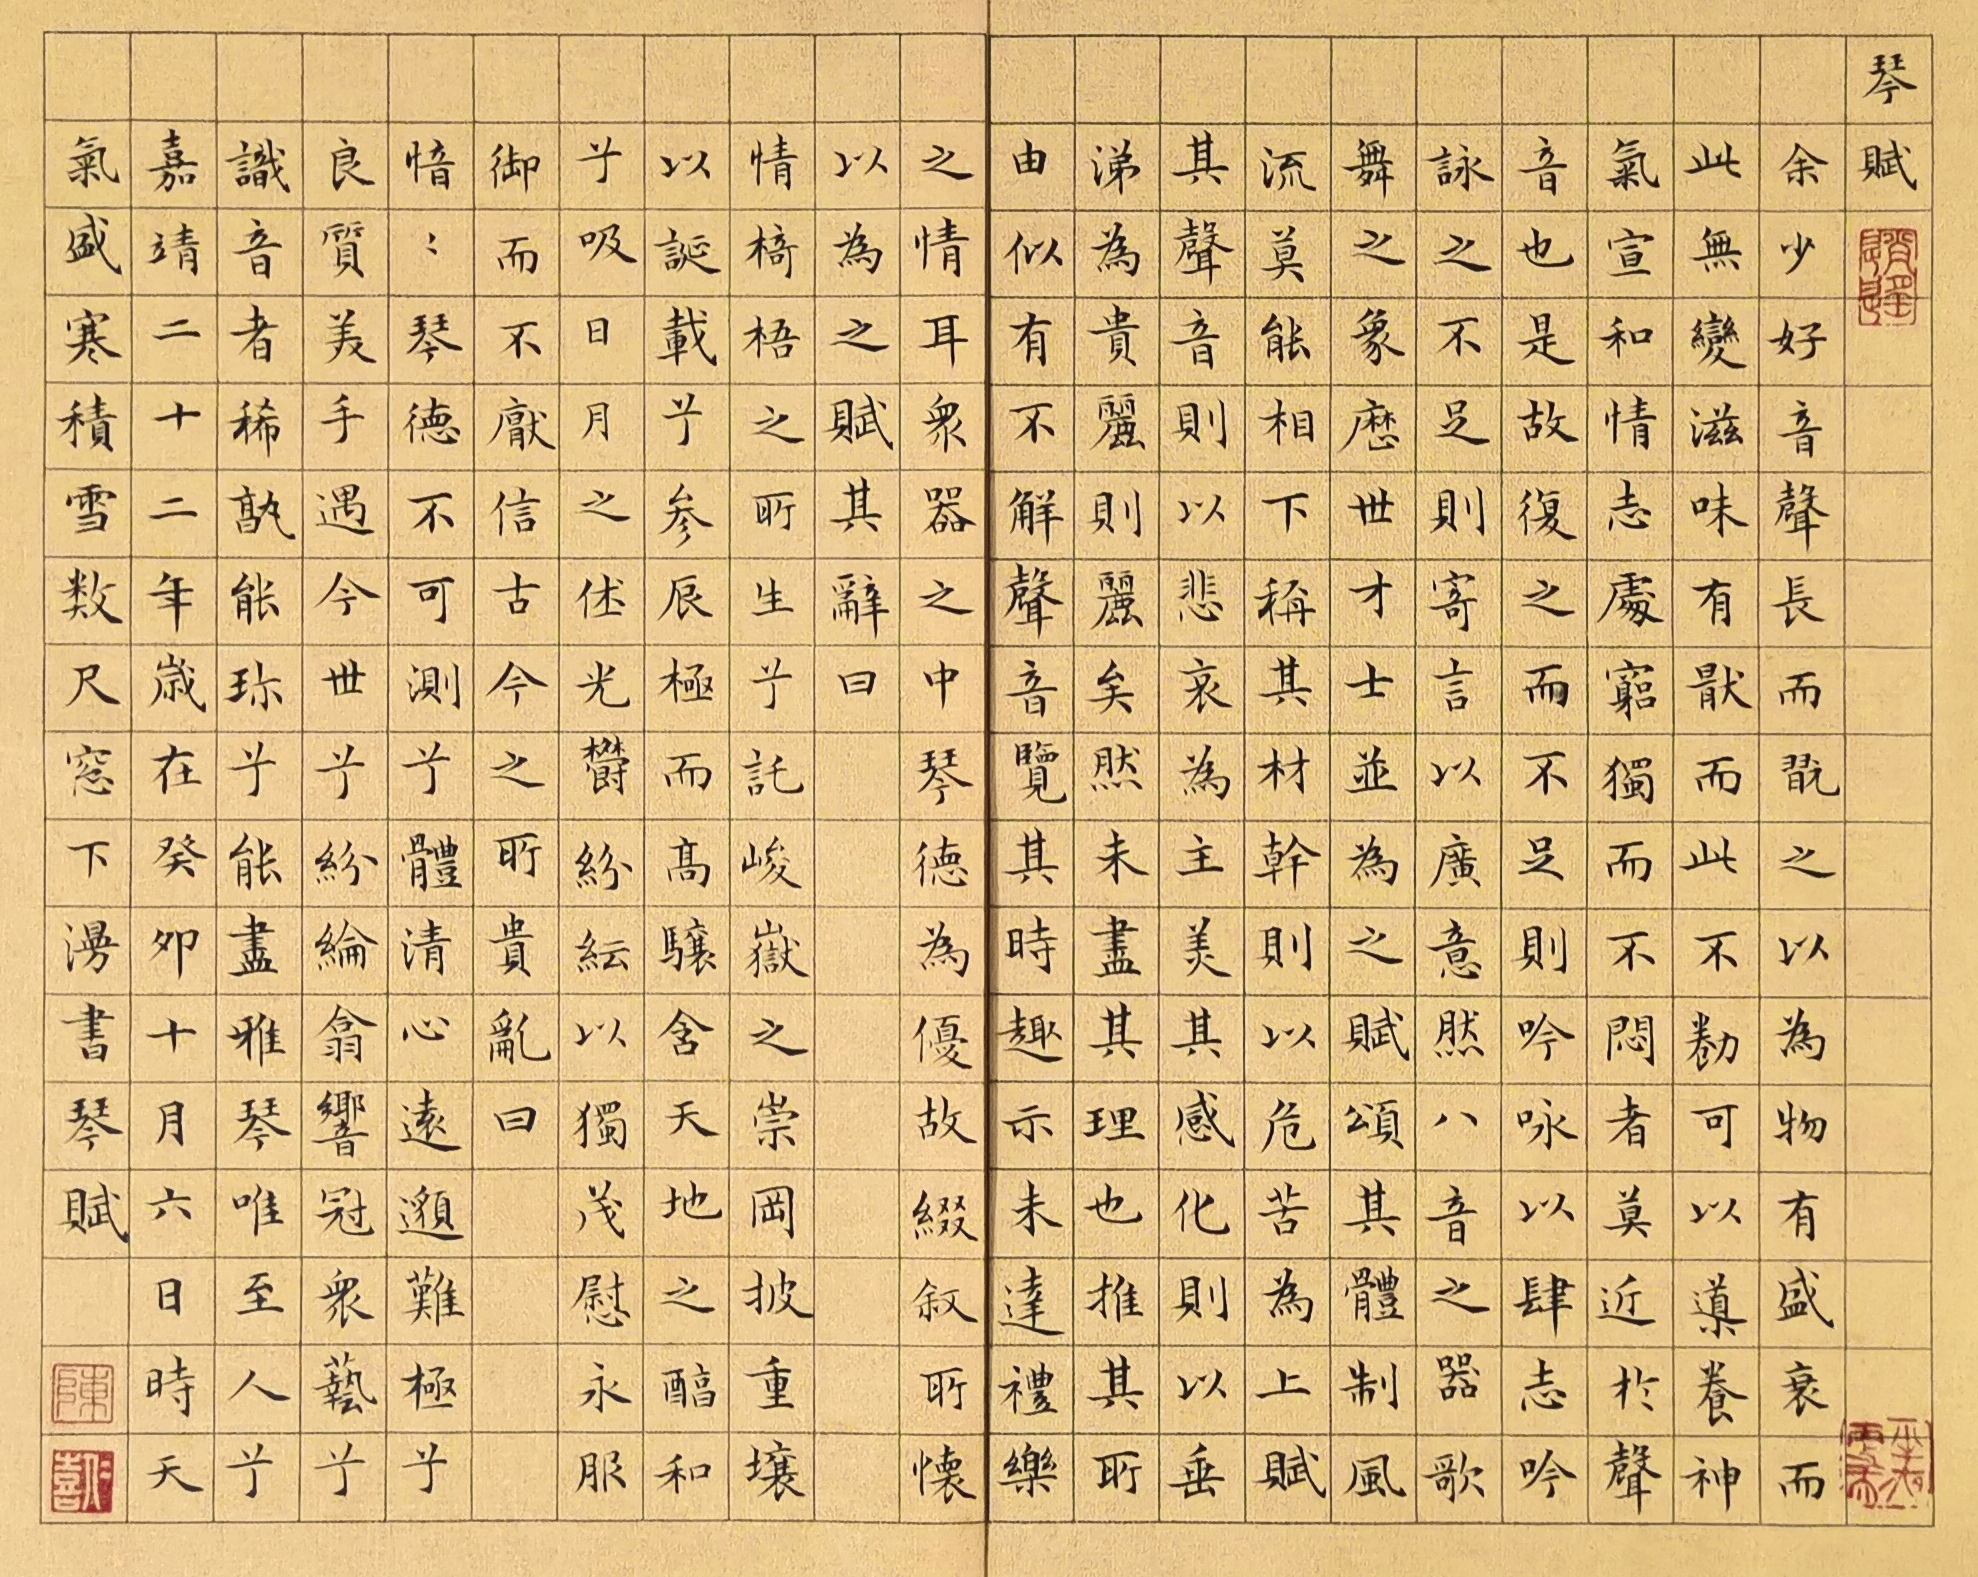 琴賦
余少好音聲長而翫之以為物有盛衰而
此無變滋味有猒而此不勌可以導養神
氣宣和情志處窮獨而不悶者莫近於聲
音也是故復之而不足則吟咏以肆志吟
詠之不足則寄言以廣意然八音之器歌
舞之象歷世才士並為之賦頌其體制風
流莫能相下稱其材幹則以危苦為上賦
其聲音則以悲哀為主美其感化則以垂
涕為貴麗則麗矣然未盡其理也推其所
由似有不解聲音覽其時趣示未達禮樂
之情耳衆器之中琴德為優故綴叙所懷
以為之賦其辭曰
情椅梧之所生兮託峻嶽之崇岡披重壤
以誕載兮參辰極而高驤含天地之醕和
兮吸日月之休光鬱紛紜以獨茂慰永服
御而不厭信古今之所貴亂曰
愔〻琴德不可測兮體清心遠邈難極兮
良質美手遇今世兮紛綸翕響冠衆藝兮
識音者稀孰能珍兮能盡雅琴唯至人兮
嘉靖二十二年歲在癸卯十月六日時天
氣盛寒積雪数尺窓下漫書琴賦
陳